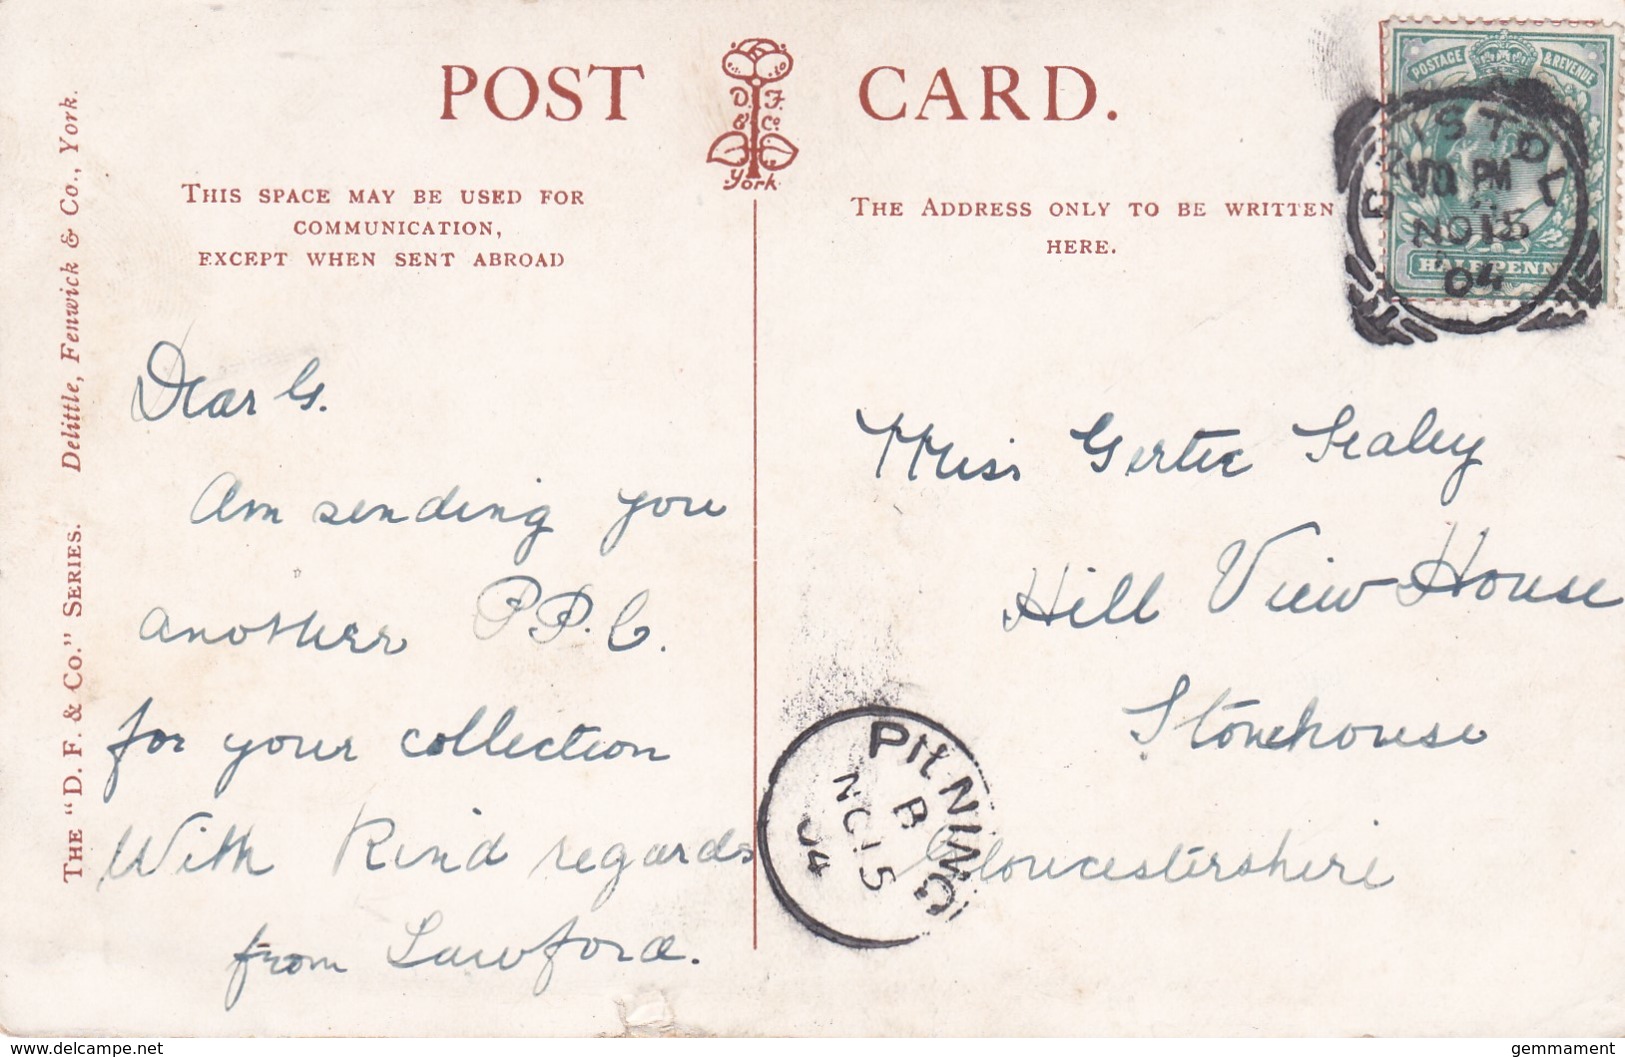 POST CARD.
D. F. & Co. York.
THIS SPACE MAY BE USED FOR
COMMUNICATION,
EXCEPT WHEN SENT ABROAD
THE ADDRESS ONLY TO BE WRITTEN
HERE.
POSTAGE & REVENUE
HALFPENNY
BRISTOL
PM
NO 15
04
THE "D. F. & CO." SERIES. Delittle, Fenwick & Co., York.
Dear G.
Am sending you
another P.P.C.
for your collection
With Kind regards
from Lawford.
Miss Gertie Sealey
Hill View House
Stonehouse
Gloucestershire
PILNING
B
NO 15
04
www.delcampe.net
gemmament